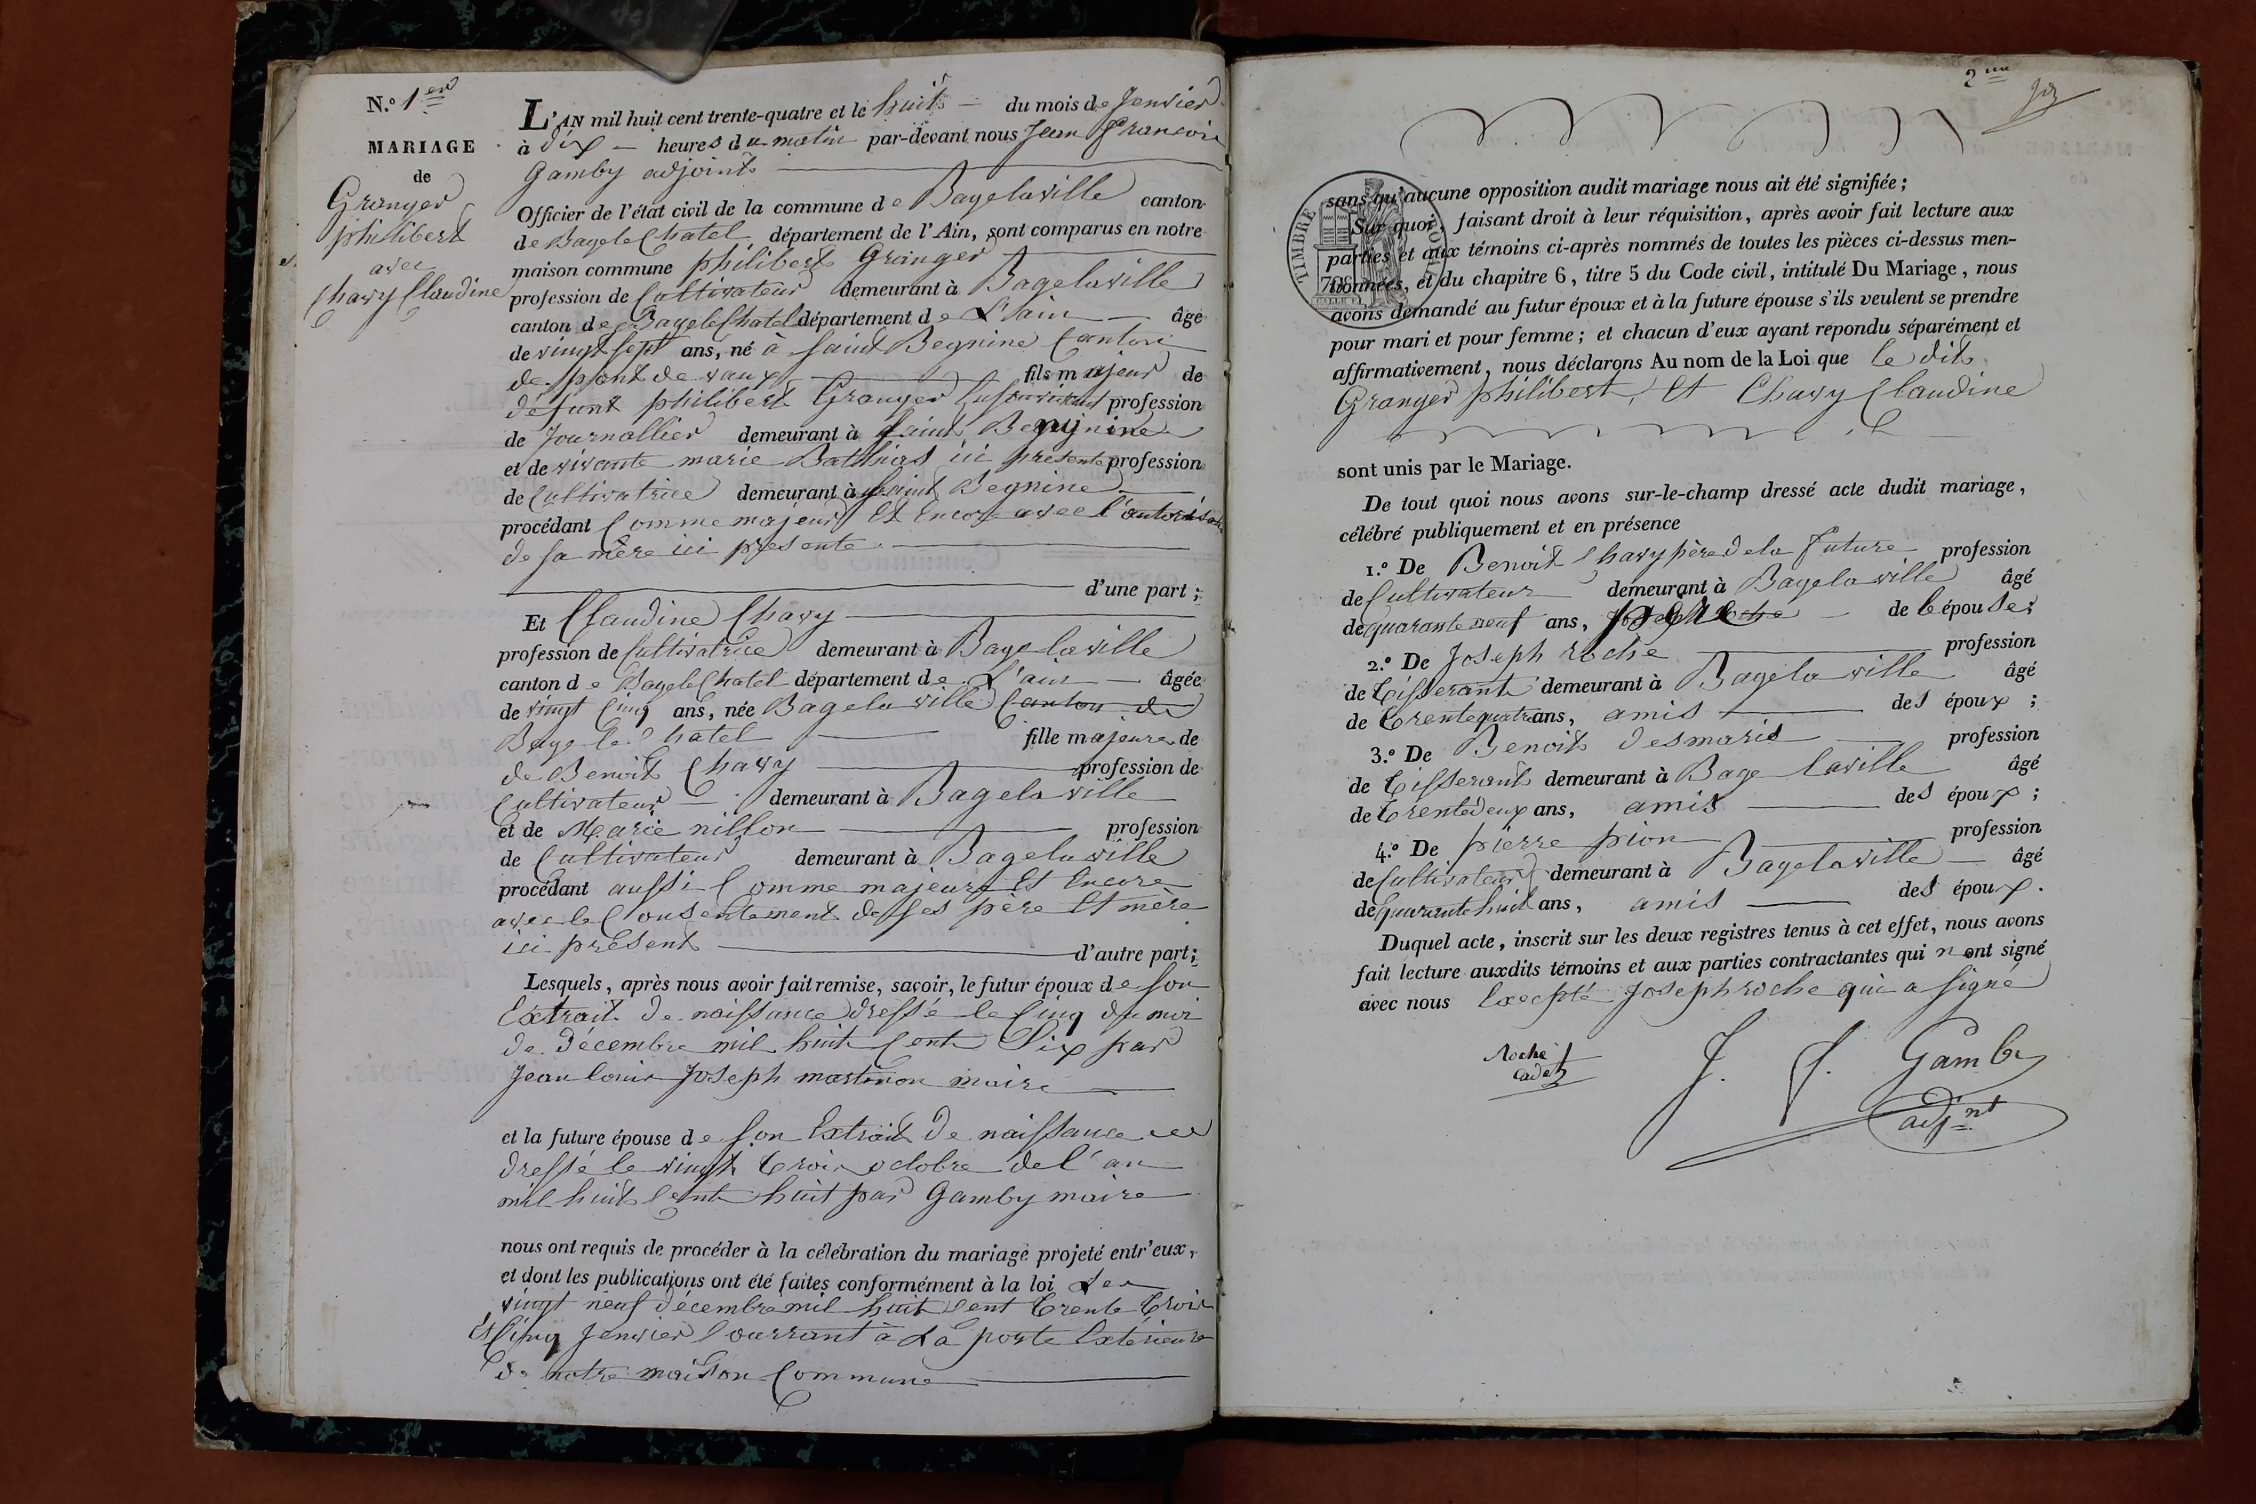 N.º 1er
MARIAGE
de
Granger
philibert
avec
Chavy Claudine
L'AN mil huit cent trente-quatre et le huit du mois de Jenvier
à dix heures du matin par-devant nous Jean François
Gamby adjoint
Officier de l'état civil de la commune de Bagelaville canton
de Bagele Chatel département de l'Ain, sont comparus en notre
maison commune philibert Granger
profession de Cultivateur demeurant à Bagelaville
canton de Bagele Chatel département de L'ain âgé
de vingt sept ans, né à Saint Begnine Canton
de pont de vaux fils majeur de
défunt philibert Granger profession
de Journallier demeurant à Saint Begnine
et de vivante marie Bathias ici presente profession
de Cultivatrice demeurant à Saint Begnine
procédant Comme majeur Et Encore avec l'autorisation
de sa mère ici presente
d'une part ;
Et Claudine Chavy
profession de Cultivatrice demeurant à Bagelaville
canton de Bagele Chatel département de L'ain âgée
de vingt Cinq ans, née Bagelaville Canton de
Bage le Chatel fille majeure de
de Benoit Chavy profession de
Cultivateur demeurant à Bagelaville
et de Marie nillon profession
de Cultivateur demeurant à Bagelaville
procédant aussi Comme majeure Et Encore
avec le Consentement de ses père Et mère
ici présent d'autre part ;
Lesquels, après nous avoir fait remise, savoir, le futur époux de son
Extrait de naissance dressé le Cinq du moi
de décembre mil huit Cent Six par
Jean louis Joseph martinon maire
et la future épouse de son Extrait de naissance
dressé le vingt trois octobre de l'an
mil huit Cent huit par Gamby maire
nous ont requis de procéder à la célébration du mariage projeté entr'eux,
et dont les publications ont été faites conformément à la loi Les
vingt neuf décembre mil huit Cent trente trois
Et Cinq Jenvier Courrant à La porte Extérieure
de notre maison Commune
2me
TIMBRE ROYAL
sans qu'aucune opposition audit mariage nous ait été signifiée ;
Sur quoi, faisant droit à leur réquisition, après avoir fait lecture aux
parties et aux témoins ci-après nommés de toutes les pièces ci-dessus men-
tionnées, et du chapitre 6, titre 5 du Code civil, intitulé Du Mariage, nous
avons demandé au futur époux et à la future épouse s'ils veulent se prendre
pour mari et pour femme ; et chacun d'eux ayant repondu séparément et
affirmativement, nous déclarons Au nom de la Loi que le dit
Granger philibert, Et Chavy Claudine
sont unis par le Mariage.
De tout quoi nous avons sur-le-champ dressé acte dudit mariage,
célébré publiquement et en présence
1.º De Benoit Chavy père de la future profession
de Cultivateur demeurant à Bagelaville âgé
de quarante neuf ans, père de l'épouse ;
2.º De Joseph roche profession
de tisserant demeurant à Bagelaville âgé
de trente quatre ans, amis des époux ;
3.º De Benoit desmaris profession
de tisserant demeurant à Bage laville âgé
de trente deux ans, amis des époux ;
4.º De pierre pion profession
de Cultivateur demeurant à Bagelaville âgé
de quarante huit ans, amis des époux.
Duquel acte, inscrit sur les deux registres tenus à cet effet, nous avons
fait lecture auxdits témoins et aux parties contractantes qui n ont signé
avec nous Excepté Joseph roche qui a signé
Roche
cadet
J. f. Gamby
adjnt